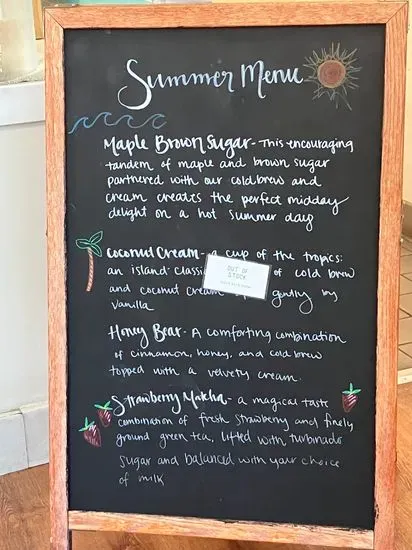 Summer Menu
Maple Brown Sugar - This encouraging
tandem of maple and brown sugar
partnered with our coldbrew and
cream creates the perfect midday
delight on a hot summer day
Coconut Cream - a cup of the tropics:
an island classi of cold brew
and coconut cream gently by
vanilla
OUT OF
STOCK
Honey Bear - A comforting combination
of cinnamon, honey, and cold brew
topped with a velvety cream.
Strawberry Matcha - a magical taste
combination of fresh strawberry and finely
ground green tea, lifted with turbinado
sugar and balanced with your choice
of milk